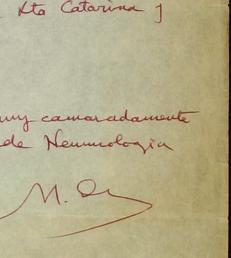 Sta Catarina ]
muy camaradamente
de Neumologia